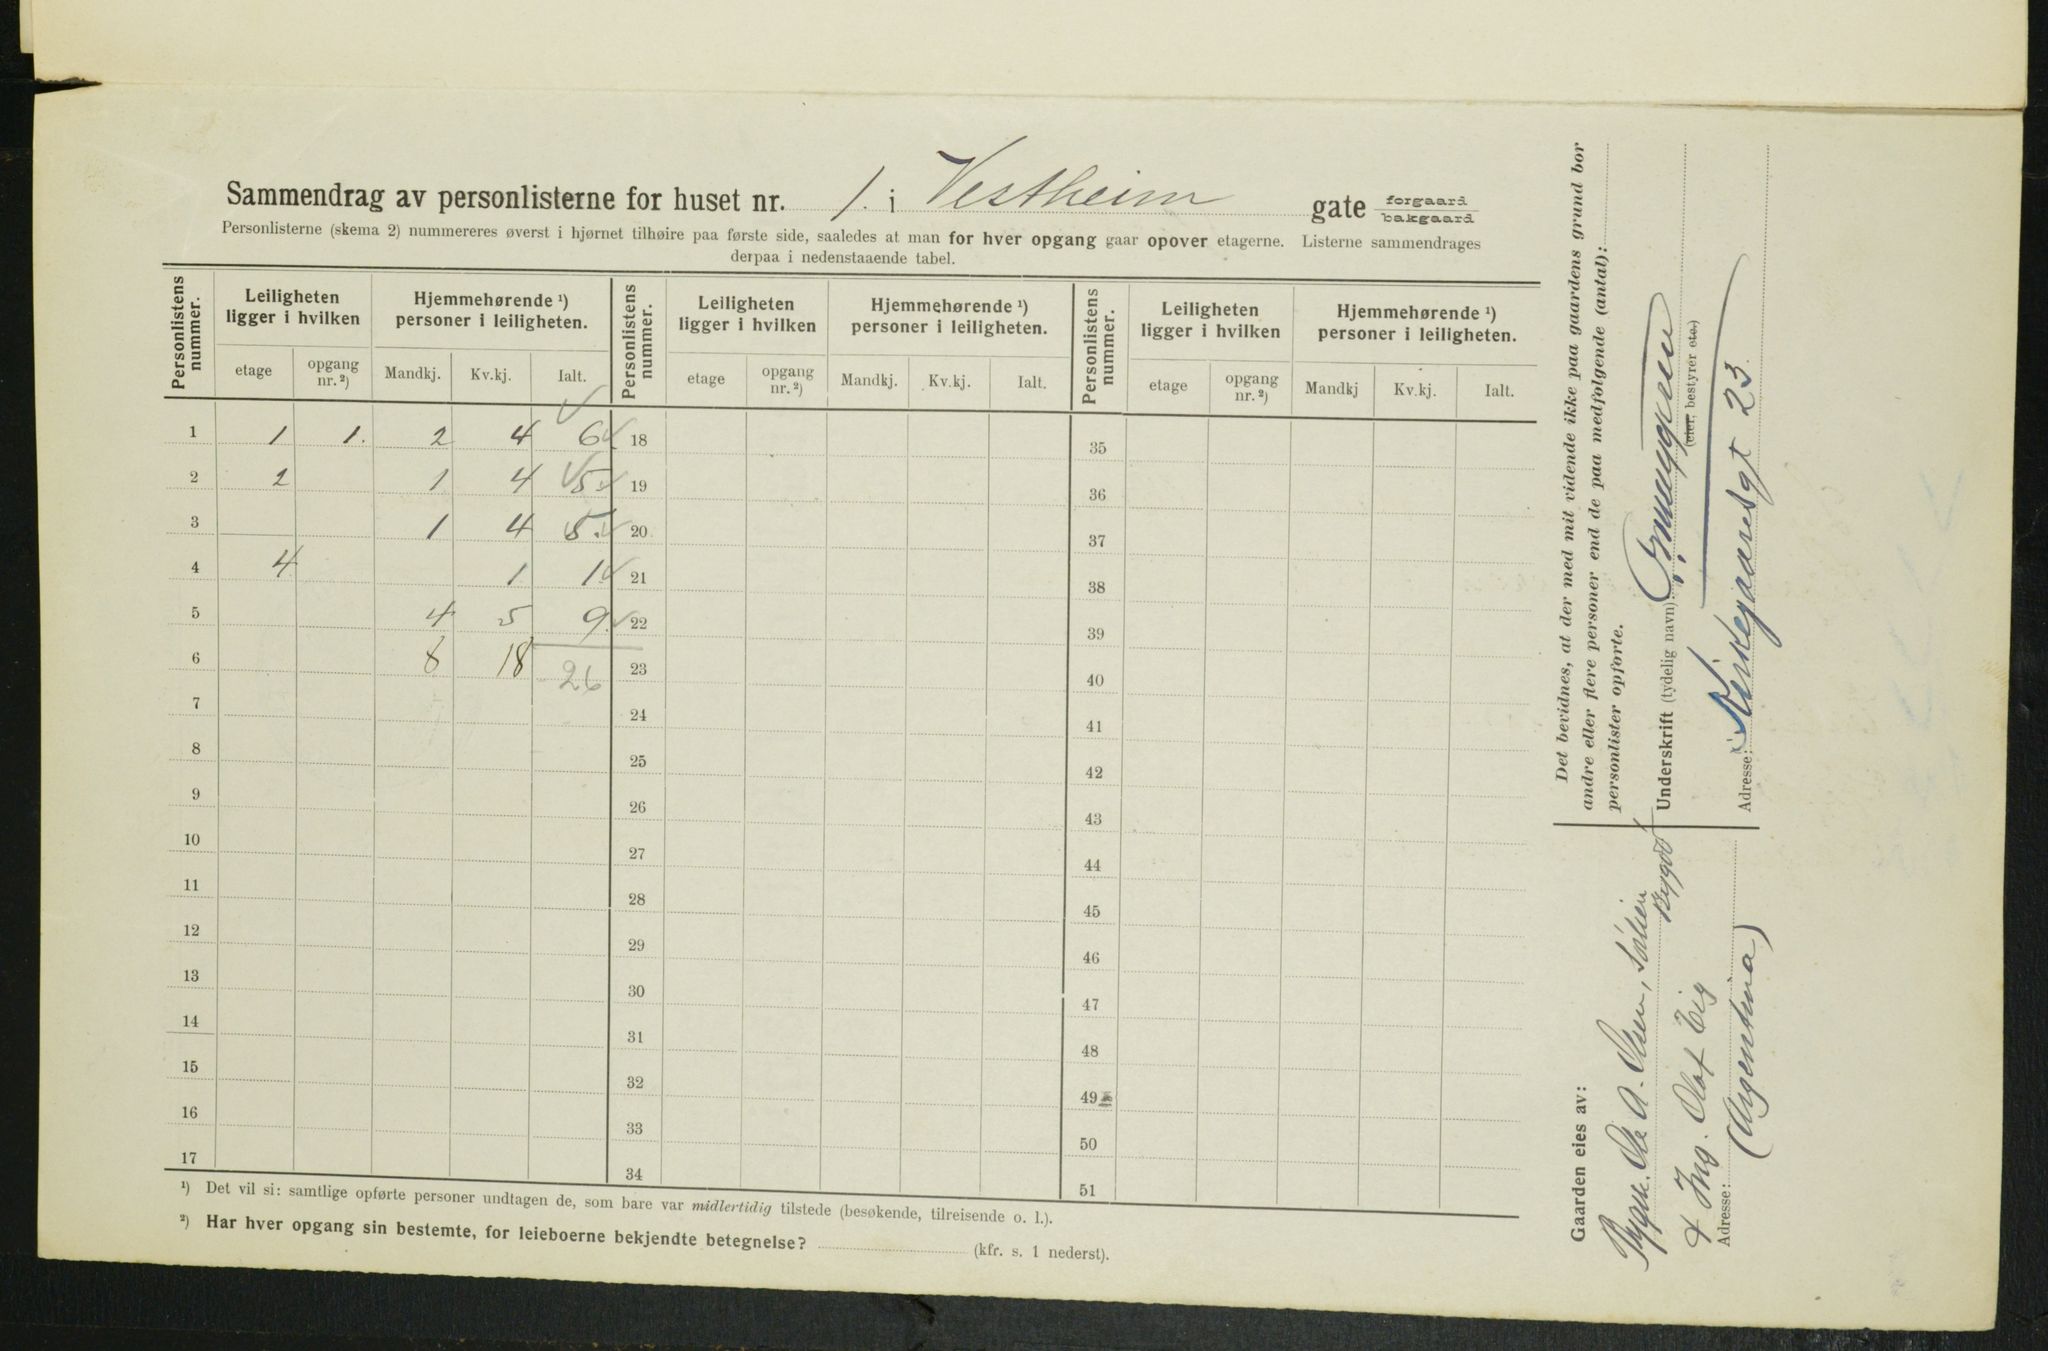 Sammendrag av personlisterne for huset nr. 1. i Vestheim gate forgaard bakgaard
Personlisterne (skema 2) nummereres øverst i hjørnet tilhøire paa første side, saaledes at man for hver opgang gaar opover etagerne. Listerne sammendrages
derpaa i nedenstaaende tabel.
Personlistens nummer. Leiligheten ligger i hvilken Hjemmehørende ¹) personer i leiligheten. Personlistens nummer. Leiligheten ligger i hvilken Hjemmehørende ¹) personer i leiligheten. Personlistens nummer. Leiligheten ligger i hvilken Hjemmehørende ¹) personer i leiligheten.
etage opgang nr. ²) Mandkj. Kv.kj. Ialt. etage opgang nr. ²) Mandkj. Kv.kj. Ialt. etage opgang nr. ²) Mandkj Kv.kj. Ialt.
1 1 1. 2 4 6 18 35
2 2 1 4 5. 19 36
3 1 4 5. 20 37
4 4 1 1 21 38
5 4 5 9. 22 39
6 8 18 26 23 40
7 24 41
8 25 42
9 26 43
10 27 44
11 28 45
12 29 46
13 30 47
14 31 48
15 32 49
16 33 50
17 34 51
¹) Det vil si: samtlige opførte personer undtagen de, som bare var midlertidig tilstede (besøkende, tilreisende o. l.).
²) Har hver opgang sin bestemte, for leieboerne bekjendte betegnelse? (kfr. s. 1 nederst).
Det bevidnes, at der med mit vidende ikke paa gaardens grund bor
andre eller flere personer end de paa medfølgende (antal):
personlister opførte.
Underskrift (tydelig navn):
(eier, bestyrer etc.)
Adresse: Kirkegaardsgt 23.
Gaarden eies av:
Ole A. Olsen, Solveien
Bygdø
& Ing. Olaf Eig
Adresse: (Argentina)